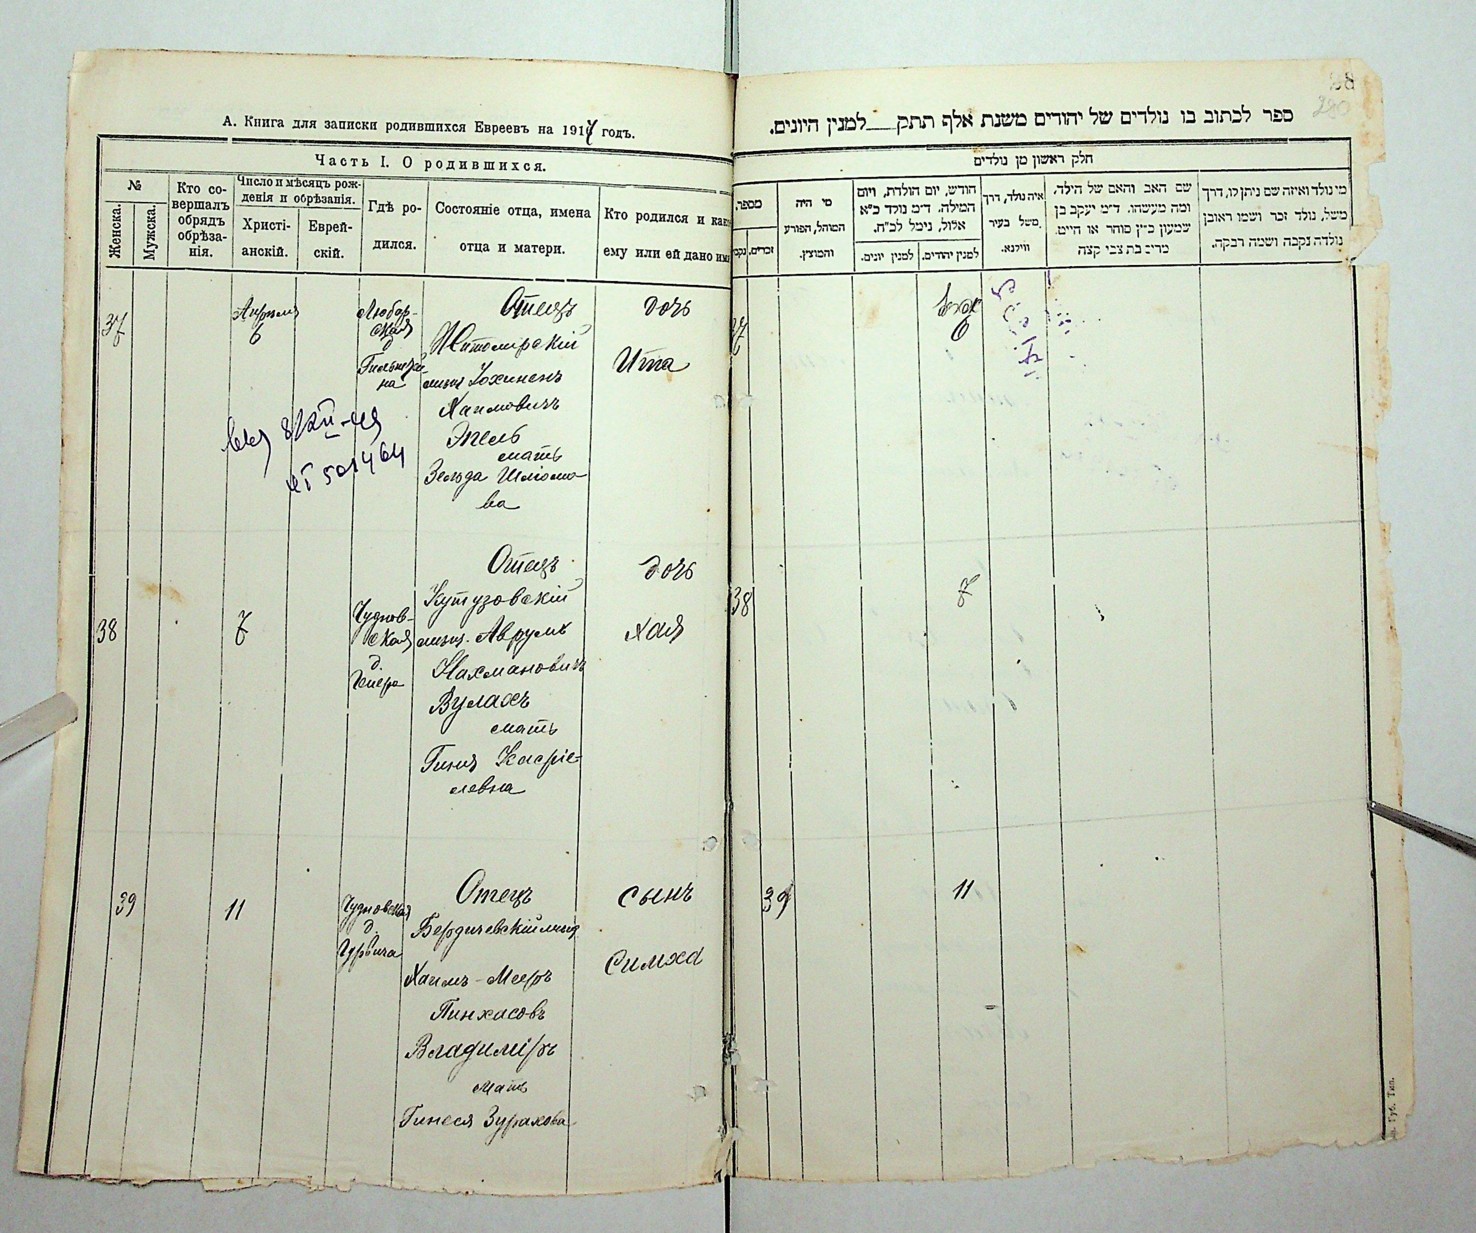 А. Книга для записки родившихся Евреевъ на 1917 годъ.
Часть I. О родившихся.
№
Женска.
Мужска.
Кто со-
вершалъ
обрядъ
обрѣза-
нія.
Число и мѣсяцъ рож-
денія и обрѣзанія.
Христі-
анскій.
Еврей-
скій.
Гдѣ ро-
дился.
Состояніе отца, имена
отца и матери.
Кто родился и како
ему или ей дано имя
37
Апрѣля
6
Любар-
ская
д
Отецъ
Житомирскій
Хаимовичъ
мать
Зельда Шліомо-
ва
дочь
Ита
38
7
Чуднов-
ская
д.
Отецъ
Кутузовскій
мѣщ. Аврумъ
Нахмановичъ
Вулахъ
мать
Касріе-
левна
дочь
Хая
39
11
Чудновская
д.
Гурвича
Отецъ
Бердичевскій мѣщ
Хаимъ-Мееръ
Пинхасовъ
Владиміръ
мать
Гинеся
сынъ
Симха
ספר לכתוב בו נולדים של יהודים משנת אלף תתק למנין היונים.
חלק ראשון מן נולדים
מספר.
זכרים.
מי היה
המוהל, הפורע
והמוצץ.
חודש, יום הולדת, ויום
המילה. ד״מ נולד כ״א
אלול, נימל לכ״ח.
למנין יונים.
למנין יהודים.
איה נולד, דרך
משל בעיר
ווילנא.
שם האב והאם של הילד.
ומה מעשהו. ד״מ יעקב בן
שמעון כ״ץ סוחר או חייט.
מרים בת צבי קצה
מי נולד ואיזה שם ניתן לו, דרך
משל, נולד זכר ושמו ראובן
נולדה נקבה ושמה רבקה.
37
6
38
7
39
11
Губ. Тип.